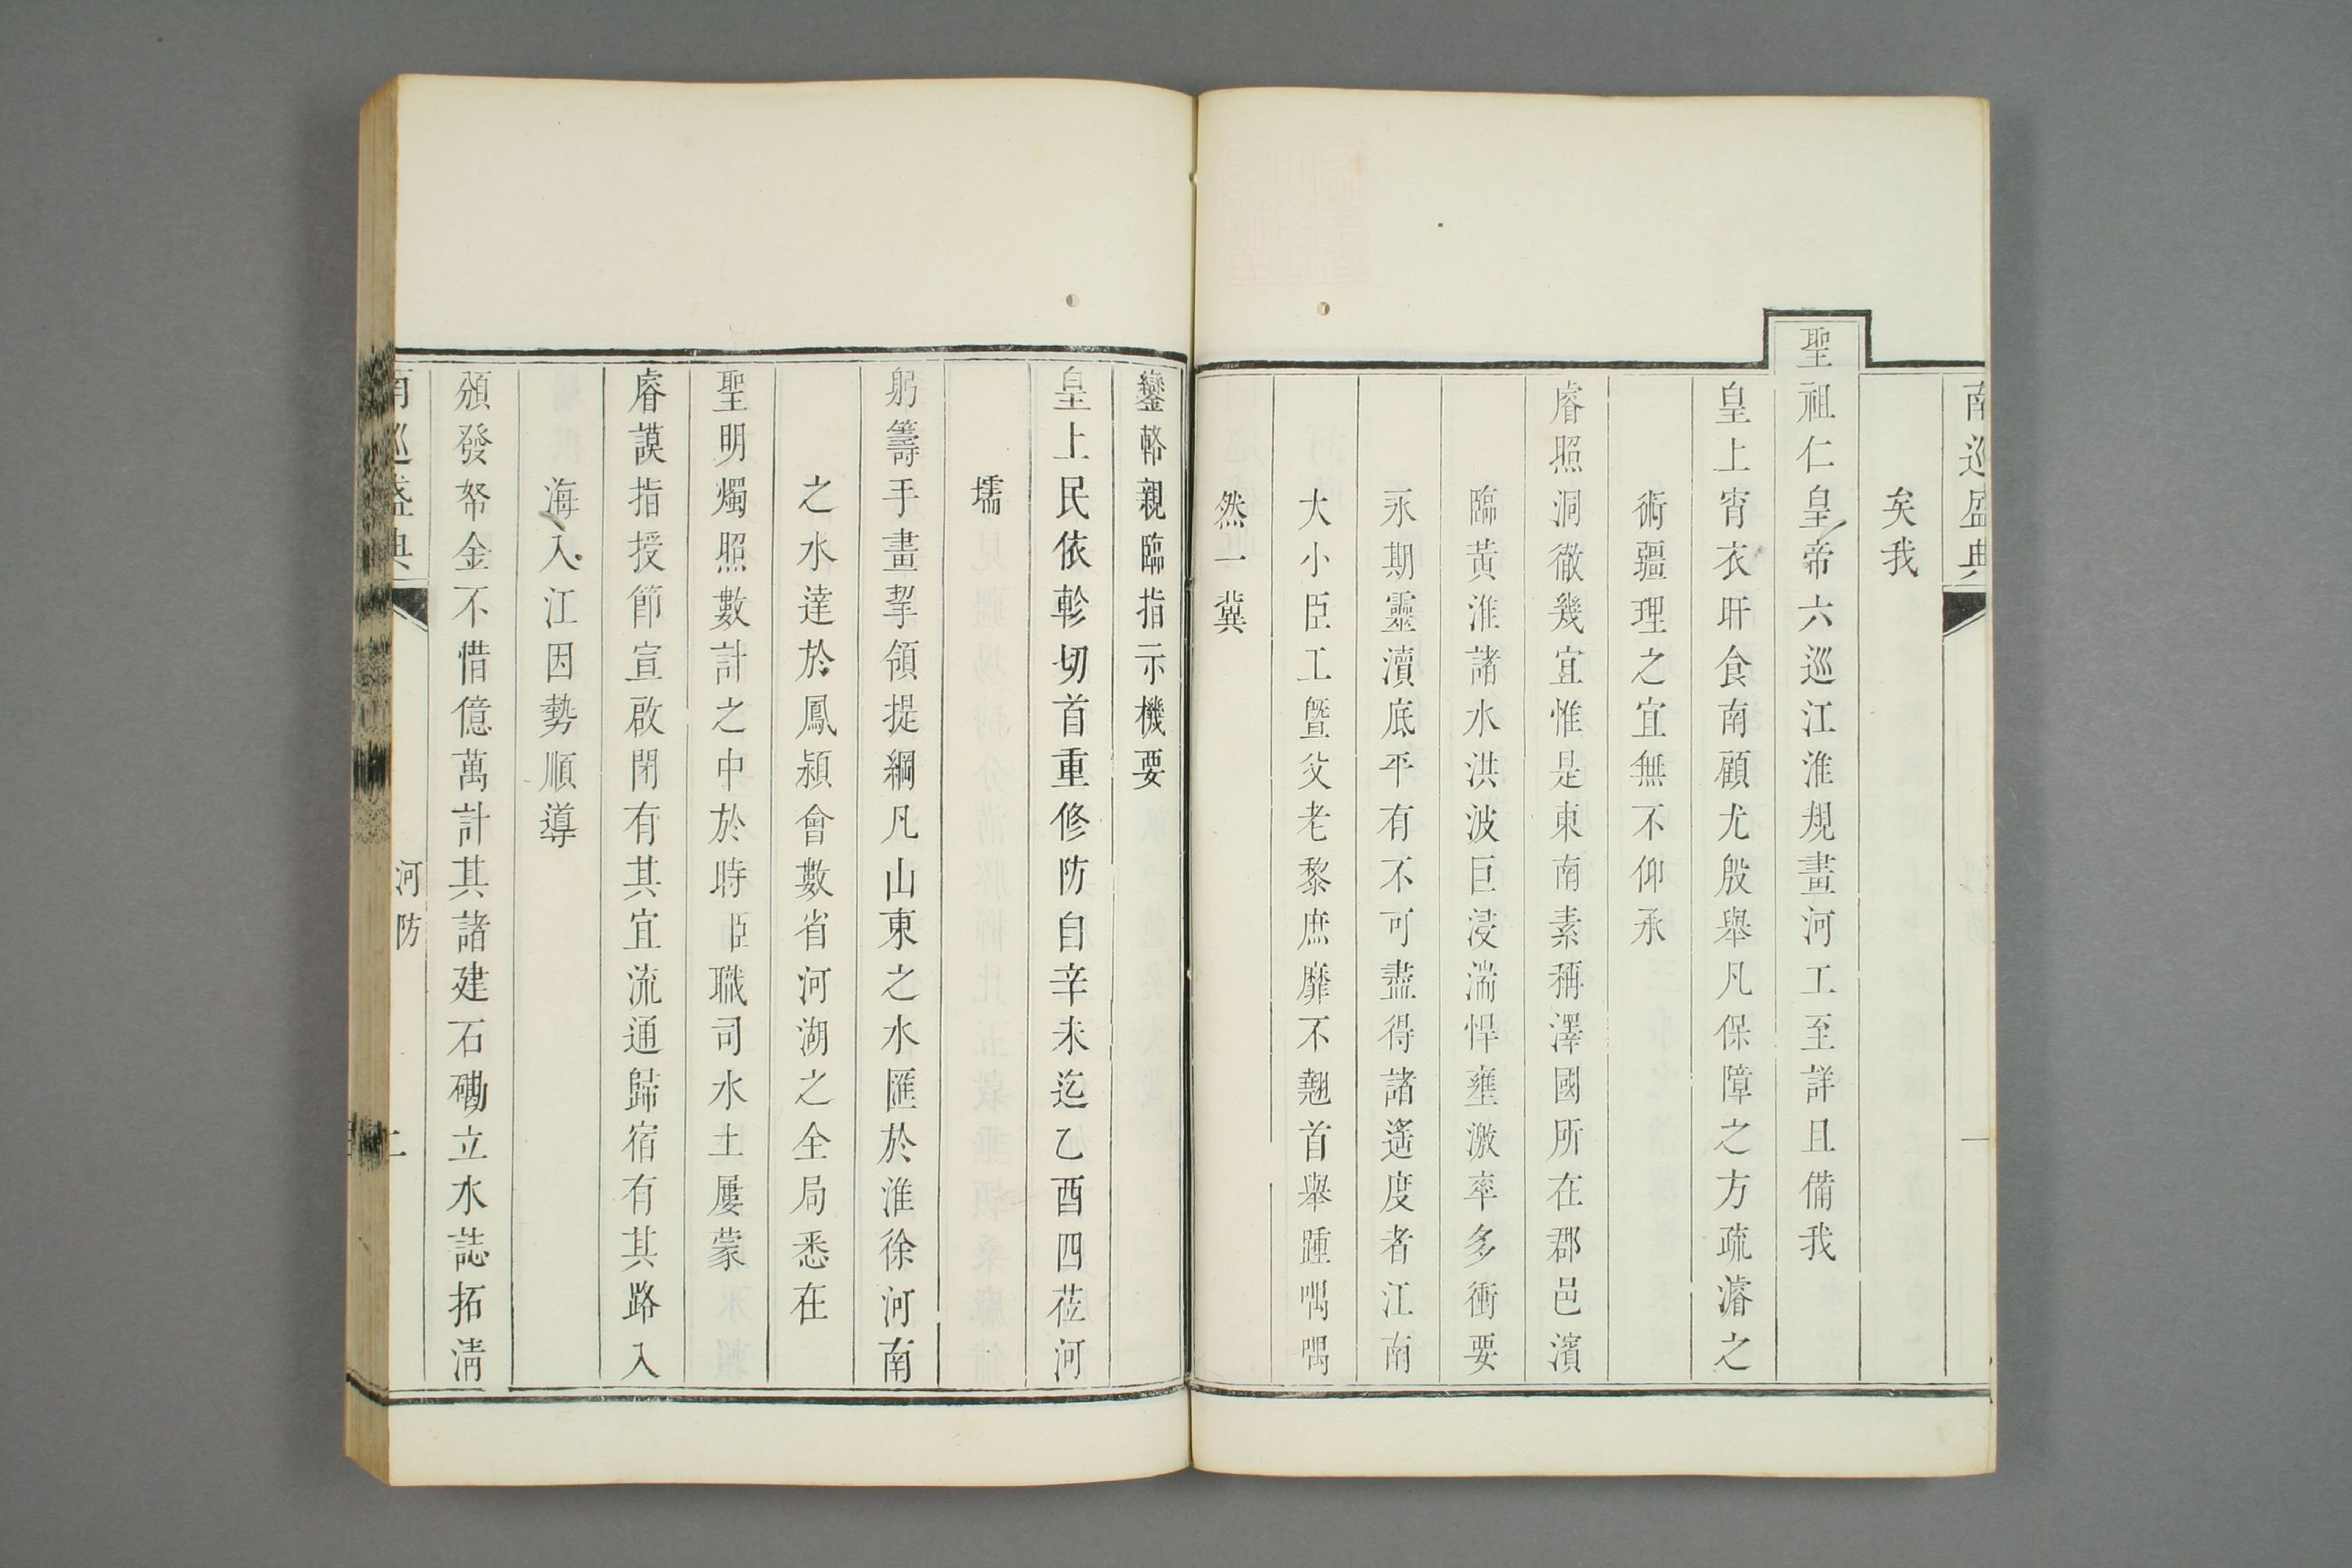 南巡盛典
一
矣我
聖祖仁皇帝六巡江淮規畫河工至詳且備我
皇上宵衣旰食南顧尤殷舉凡保障之方疏濬之
術疆理之宜無不仰承
睿照洞徹幾宜惟是東南素稱澤國所在郡邑濱
臨黃淮諸水洪波巨浸湍悍壅激率多衝要
永期靈瀆底平有不可盡得諸遙度者江南
大小臣工暨父老黎庶靡不翹首舉踵喁喁
然一冀
鑾輅親臨指示機要
皇上民依軫切首重修防自辛未迄乙酉四莅河
壖
躬籌手畫挈領提綱凡山東之水匯於淮徐河南
之水達於鳳潁會數省河湖之全局悉在
聖明燭照數計之中於時臣職司水土屢蒙
睿謨指授節宣啟閉有其宜流通歸宿有其路入
海入江因勢順導
頒發帑金不惜億萬計其諸建石磡立水誌拓清
南巡盛典
河防
二